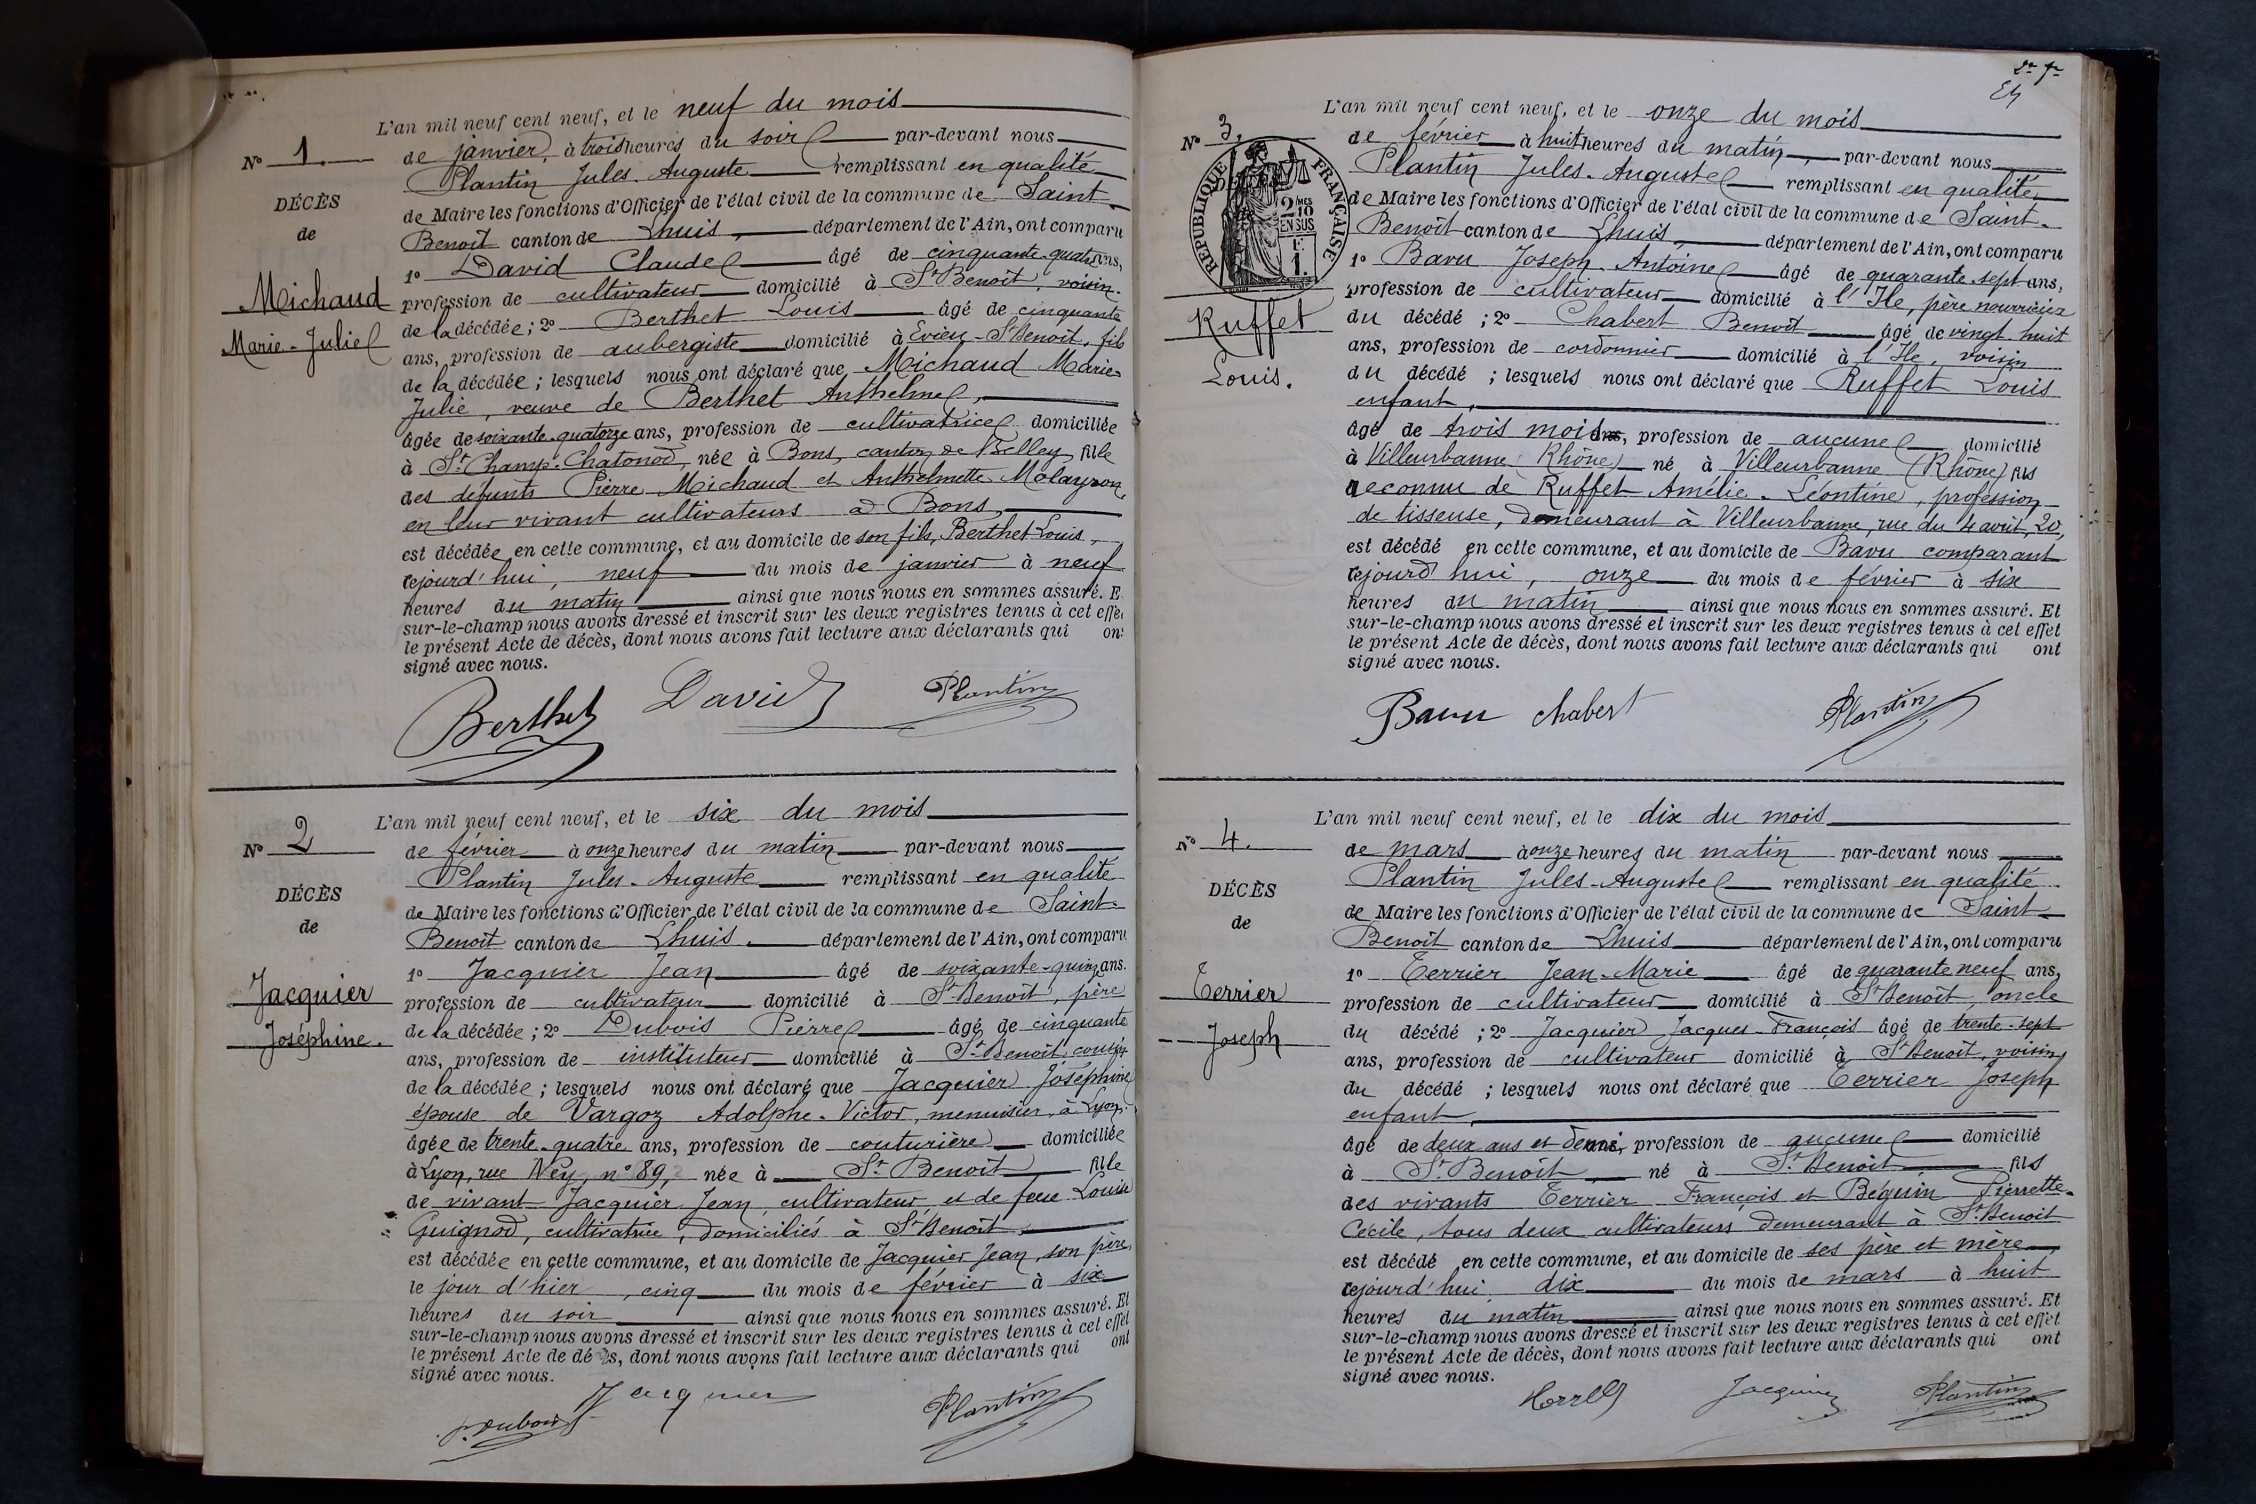 L'an mil neuf cent neuf, et le neuf du mois
N° 1.
de janvier, à trois heures du soir par-devant nous
Plantin Jules Auguste remplissant en qualité
DÉCÈS
de Maire les fonctions d'Officier de l'état civil de la commune de Saint-
de
Benoît canton de Lhuis, département de l'Ain, ont comparu
1° David Claude âgé de cinquante-quatre ans,
Michaud
profession de cultivateur domicilié à St Benoît, voisin
de la décédée; 2° Berthet Louis âgé de cinquante
Marie-Julie
ans, profession de aubergiste domicilié à Evieu-St Benoît, fils
de la décédée; lesquels nous ont déclaré que Michaud Marie
Julie, veuve de Berthet Anthelme,
âgée de soixante-quatorze ans, profession de cultivatrice domiciliée
à St Champ-Chatonod, née à Bons, canton de Belley fille
des défunts Pierre Michaud et Anthelmette Molayron,
en leur vivant cultivateurs à Bons,
est décédée en cette commune, et au domicile de son fils, Berthet Louis,
cejourd'hui, neuf du mois de janvier à neuf
heures du matin ainsi que nous nous en sommes assuré. E
sur-le-champ nous avons dressé et inscrit sur les deux registres tenus à cet effe
le présent Acte de décès, dont nous avons fait lecture aux déclarants qui on
signé avec nous.
Berthet David Plantin
L'an mil neuf cent neuf, et le six du mois
N° 2
de février à onze heures du matin par-devant nous
Plantin Jules-Auguste remplissant en qualité
DÉCÈS
de Maire les fonctions d'Officier de l'état civil de la commune de Saint-
de
Benoît canton de Lhuis. département de l'Ain, ont comparu
1° Jacquier Jean âgé de soixante-quinze ans.
Jacquier
profession de cultivateur domicilié à St Benoît, père
de la décédée; 2° Dubois Pierre âgé de cinquante
Joséphine.
ans, profession de instituteur domicilié à St Benoît, cousin
de la décédée; lesquels nous ont déclaré que Jacquier Joséphine
épouse de Vargoz Adolphe-Victor, menuisier, à Lyon.
âgée de trente-quatre ans, profession de couturière domiciliée
à Lyon, rue Ney, n° 89, née à St Benoît fille
de vivant Jacquier Jean, cultivateur, et de feue Louise
Guignod, cultivatrice, domiciliés à St Benoît,
est décédée en cette commune, et au domicile de Jacquier Jean, son père,
le jour d'hier, cinq du mois de février à six
heures du soir ainsi que nous nous en sommes assuré. Et
sur-le-champ nous avons dressé et inscrit sur les deux registres tenus à cet effet
le présent Acte de décès, dont nous avons fait lecture aux déclarants qui ont
signé avec nous.
P. Dubois Jacquier Plantin
L'an mil neuf cent neuf, et le onze du mois
N° 3.
de février à huit heures du matin, par-devant nous
Plantin Jules-Auguste remplissant en qualité
de Maire les fonctions d'Officier de l'état civil de la commune de Saint-
RÉPUBLIQUE FRANÇAISE
2/MES 10
EN SUS
F.
1.
Benoît canton de Lhuis, département de l'Ain, ont comparu
1° Bavu Joseph-Antoine âgé de quarante-sept ans,
profession de cultivateur domicilié à l'Ile, père nourricier
Ruffet
du décédé; 2° Chabert Benoît âgé de vingt-huit
ans, profession de cordonnier domicilié à l'Ile, voisin
Louis.
du décédé; lesquels nous ont déclaré que Ruffet Louis
enfant,
âgé de trois mois ans, profession de aucune domicilié
à Villeurbanne (Rhône) né à Villeurbanne (Rhône) fils
reconnu de Ruffet Amélie-Léontine, profession
de tisseuse, demeurant à Villeurbanne, rue du 4 avril, 20,
est décédé en cette commune, et au domicile de Bavu comparant
cejourd'hui, onze du mois de février à six
heures du matin ainsi que nous nous en sommes assuré. Et
sur-le-champ nous avons dressé et inscrit sur les deux registres tenus à cet effet
le présent Acte de décès, dont nous avons fait lecture aux déclarants qui ont
signé avec nous.
Bavu Chabert Plantin
L'an mil neuf cent neuf, et le dix du mois
N° 4.
de mars à onze heures du matin par-devant nous
Plantin Jules-Auguste remplissant en qualité
DÉCÈS
de Maire les fonctions d'Officier de l'état civil de la commune de Saint-
de
Benoît canton de Lhuis département de l'Ain, ont comparu
1° Terrier Jean-Marie âgé de quarante neuf ans,
Terrier
profession de cultivateur domicilié à St Benoît, oncle
du décédé; 2° Jacquier Jacques-François âgé de trente-sept
Joseph
ans, profession de cultivateur domicilié à St Benoît, voisin
du décédé; lesquels nous ont déclaré que Terrier Joseph
enfant,
âgé de deux ans et demi, profession de aucune domicilié
à St Benoît, né à St Benoît fils
des vivants Terrier François et Béguin Pierrette-
Cécile, tous deux cultivateurs demeurant à St Benoît
est décédé en cette commune, et au domicile de ses père et mère,
cejourd'hui, dix du mois de mars à huit
heures du matin ainsi que nous nous en sommes assuré. Et
sur-le-champ nous avons dressé et inscrit sur les deux registres tenus à cet effet
le présent Acte de décès, dont nous avons fait lecture aux déclarants qui ont
signé avec nous.
Jacquier Plantin